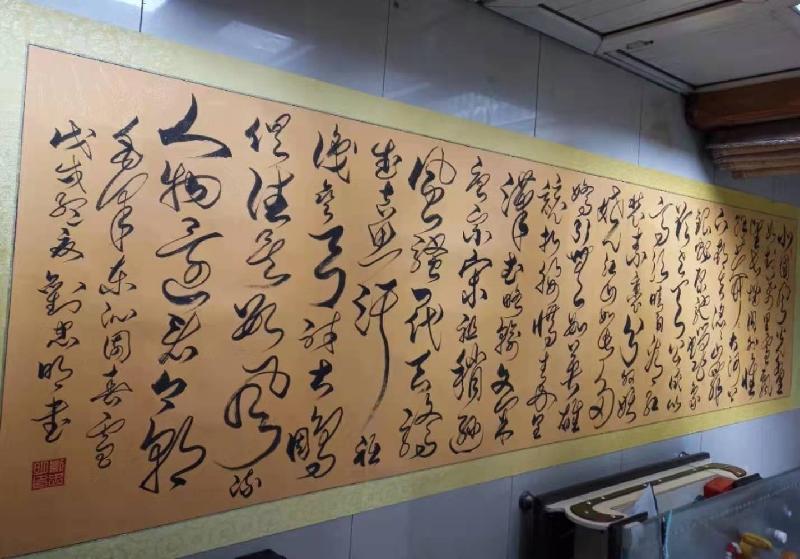 北国风光千里冰
封万里雪飘望
长城内外惟
余莽莽大河上
下顿失滔滔山舞
银蛇原驰蜡象
欲与天公试比
高须晴日看红
装素裹分外妖
娆江山如此多
娇引无数英雄
竞折腰惜秦皇
汉武略输文采
唐宗宋祖稍逊
风骚一代天骄
成吉思汗祗
识弯弓射大雕
俱往矣数风流
人物还看今朝
毛泽东沁园春雪
戊戌孟夏劉忠明书